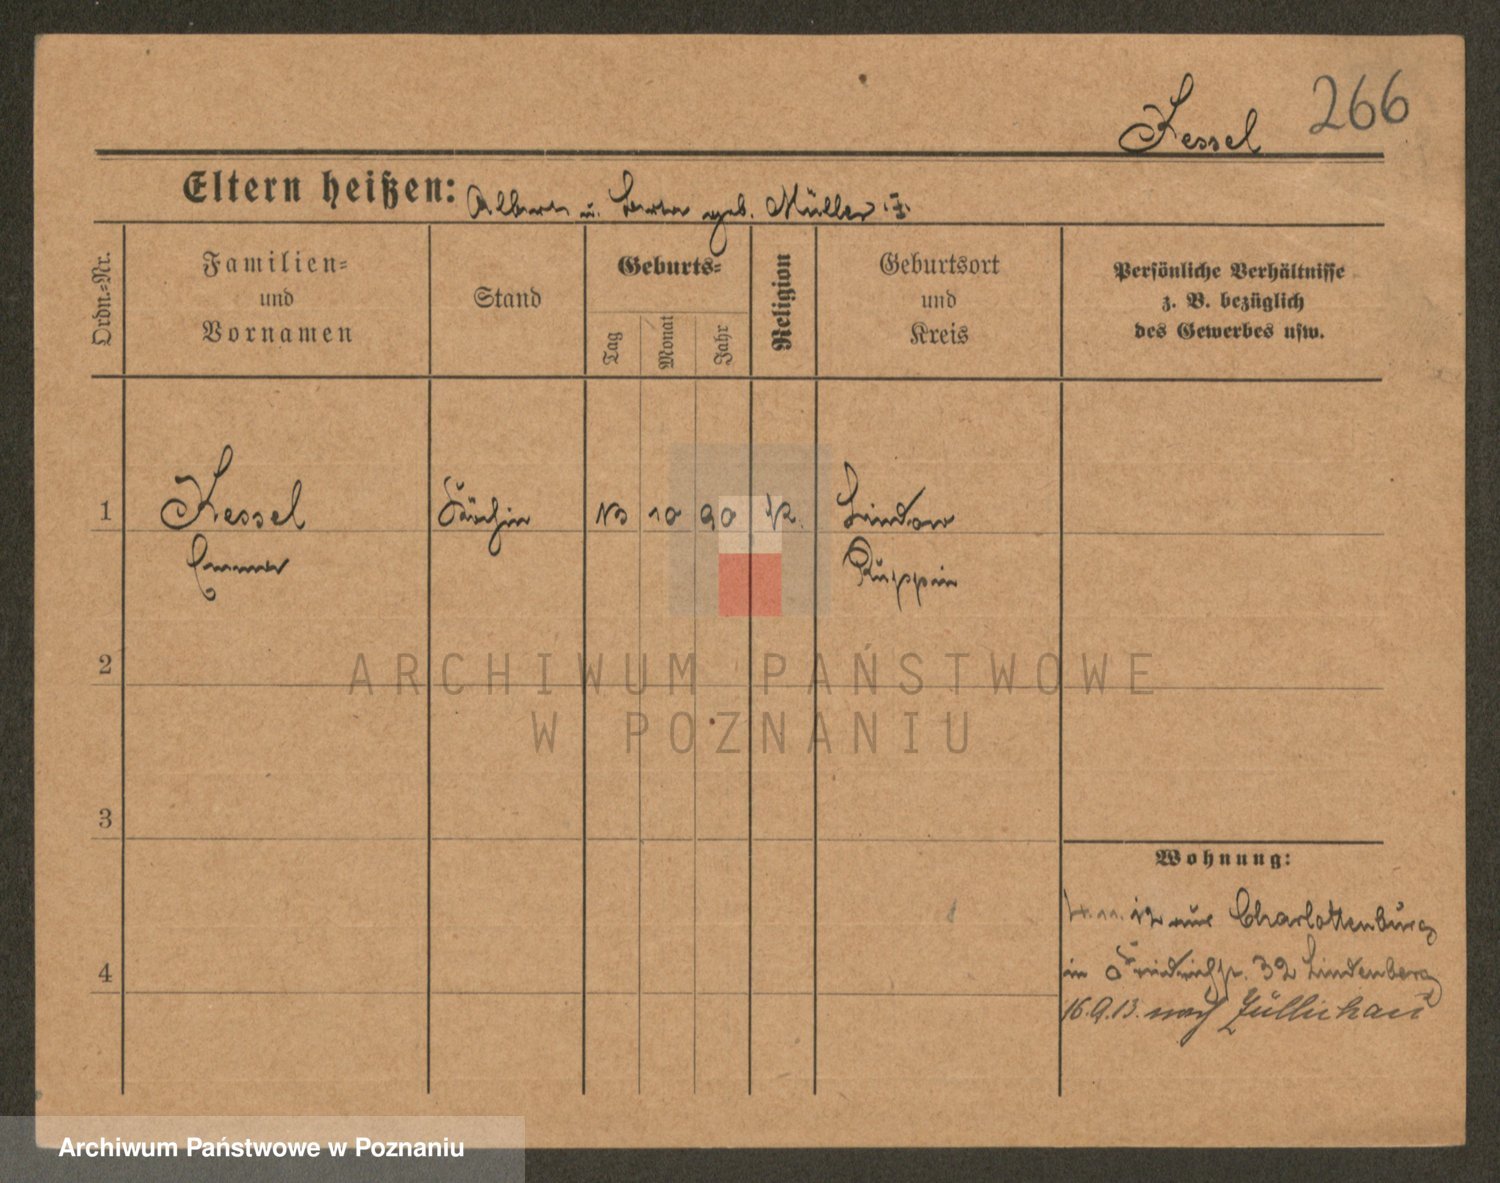 266
Kessel
Eltern heißen: Albert u. geb. Müller
Ordn.-Nr.
Familien-
und
Vornamen
Stand
Geburts-
Tag
Monat
Jahr
Religion
Geburtsort
und
Kreis
Persönliche Verhältnisse
z. B. bezüglich
des Gewerbes usw.
1
Kessel
Emma
10 90
Lindow
Ruppin
2
ARCHIWUM PAŃSTWOWE
W POZNANIU
3
Wohnung:
12 aus Charlottenburg
in Friedrichstr. 32 Lindenberg
4
16.9.13. nach Züllichau
Archiwum Państwowe w Poznaniu